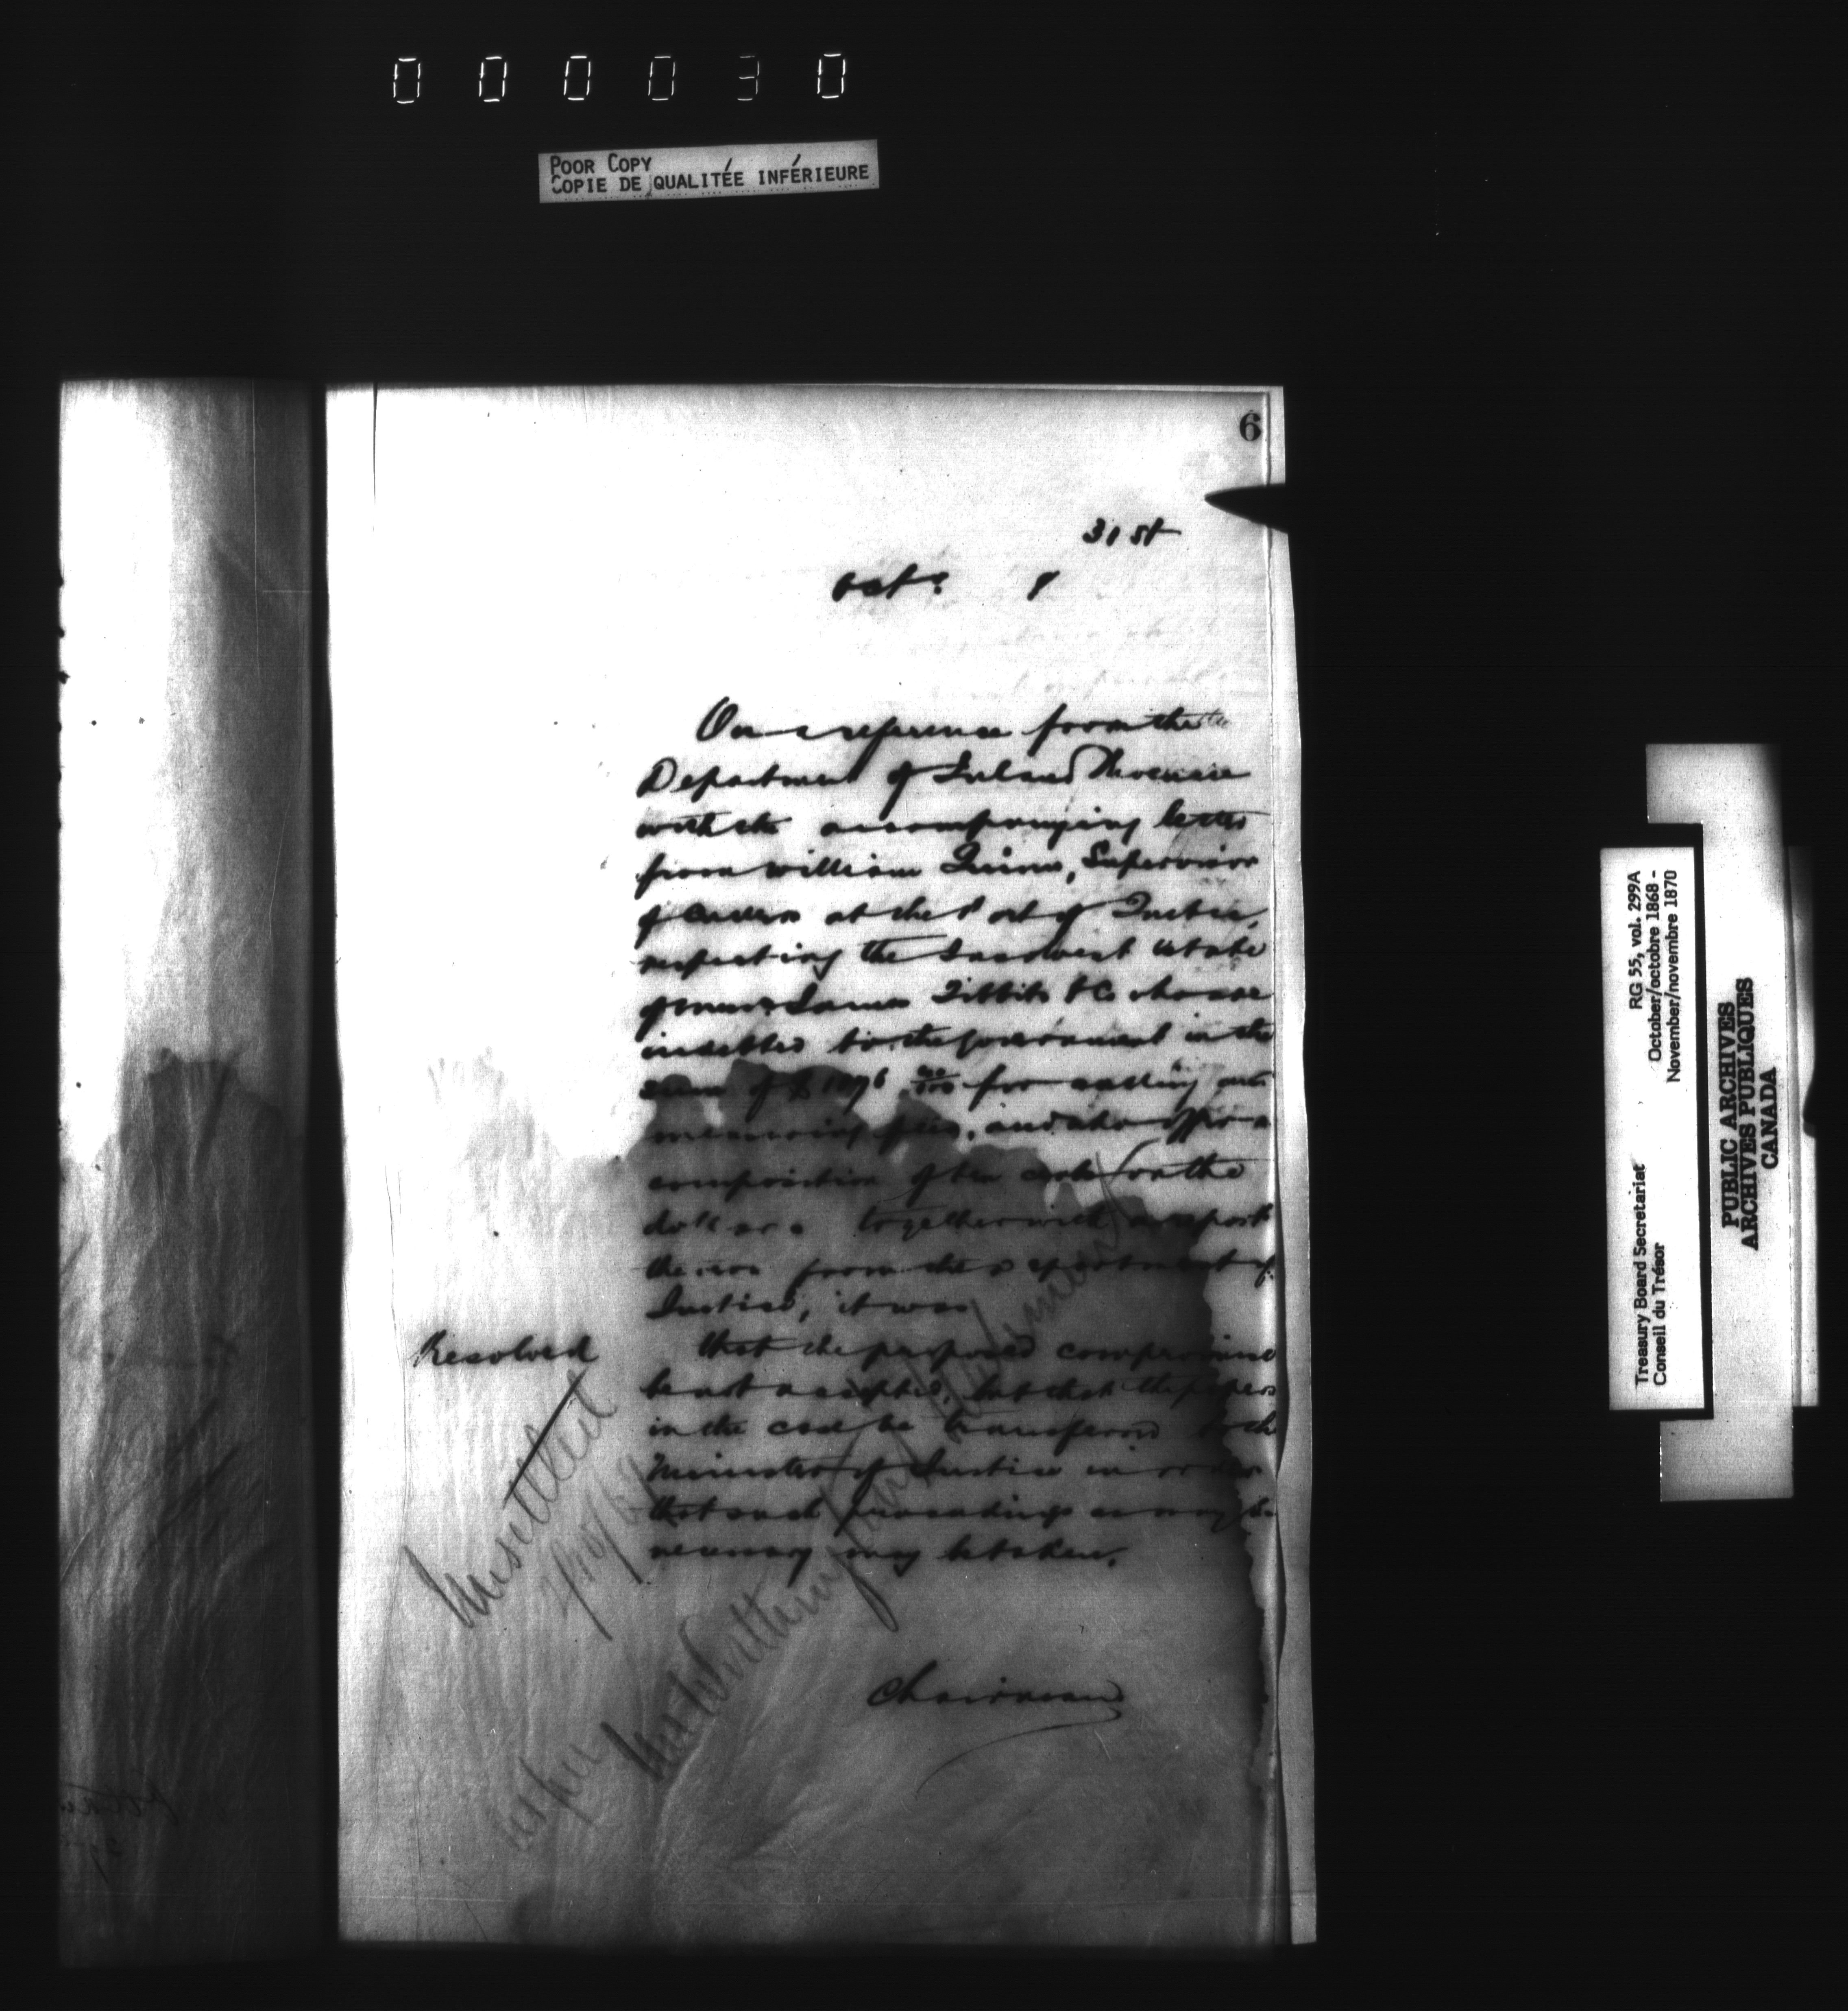 000030
POOR COPY
COPIE DE QUALITÉE INFÉRIEURE
6
31st
Oct
On a reference from the
Department of Inland Revenue
with the accompanying letter
from William Quinn, Supervisor
of Cullers at the Port of Quebec,
respecting the Insolvent Estate
of Messrs James Tibbits & Co who are
indebted to the Government in the
sum of $ for culling and
measuring fees, and who offer a
composition of ten cents on the
dollar. together with a report
thereon from the Department of
Justice, it was
Resolved that the proposed compromise
be not accepted, but that the papers
in the case be transferred to the
Minister of Justice in order
that such proceedings as may be
necessary may be taken.
Chairman
RG 55, vol. 299A
October/octobre 1868 -
November/novembre 1870
Treasury Board Secretariat
Conseil du Trésor
PUBLIC ARCHIVES
ARCHIVES PUBLIQUES
CANADA